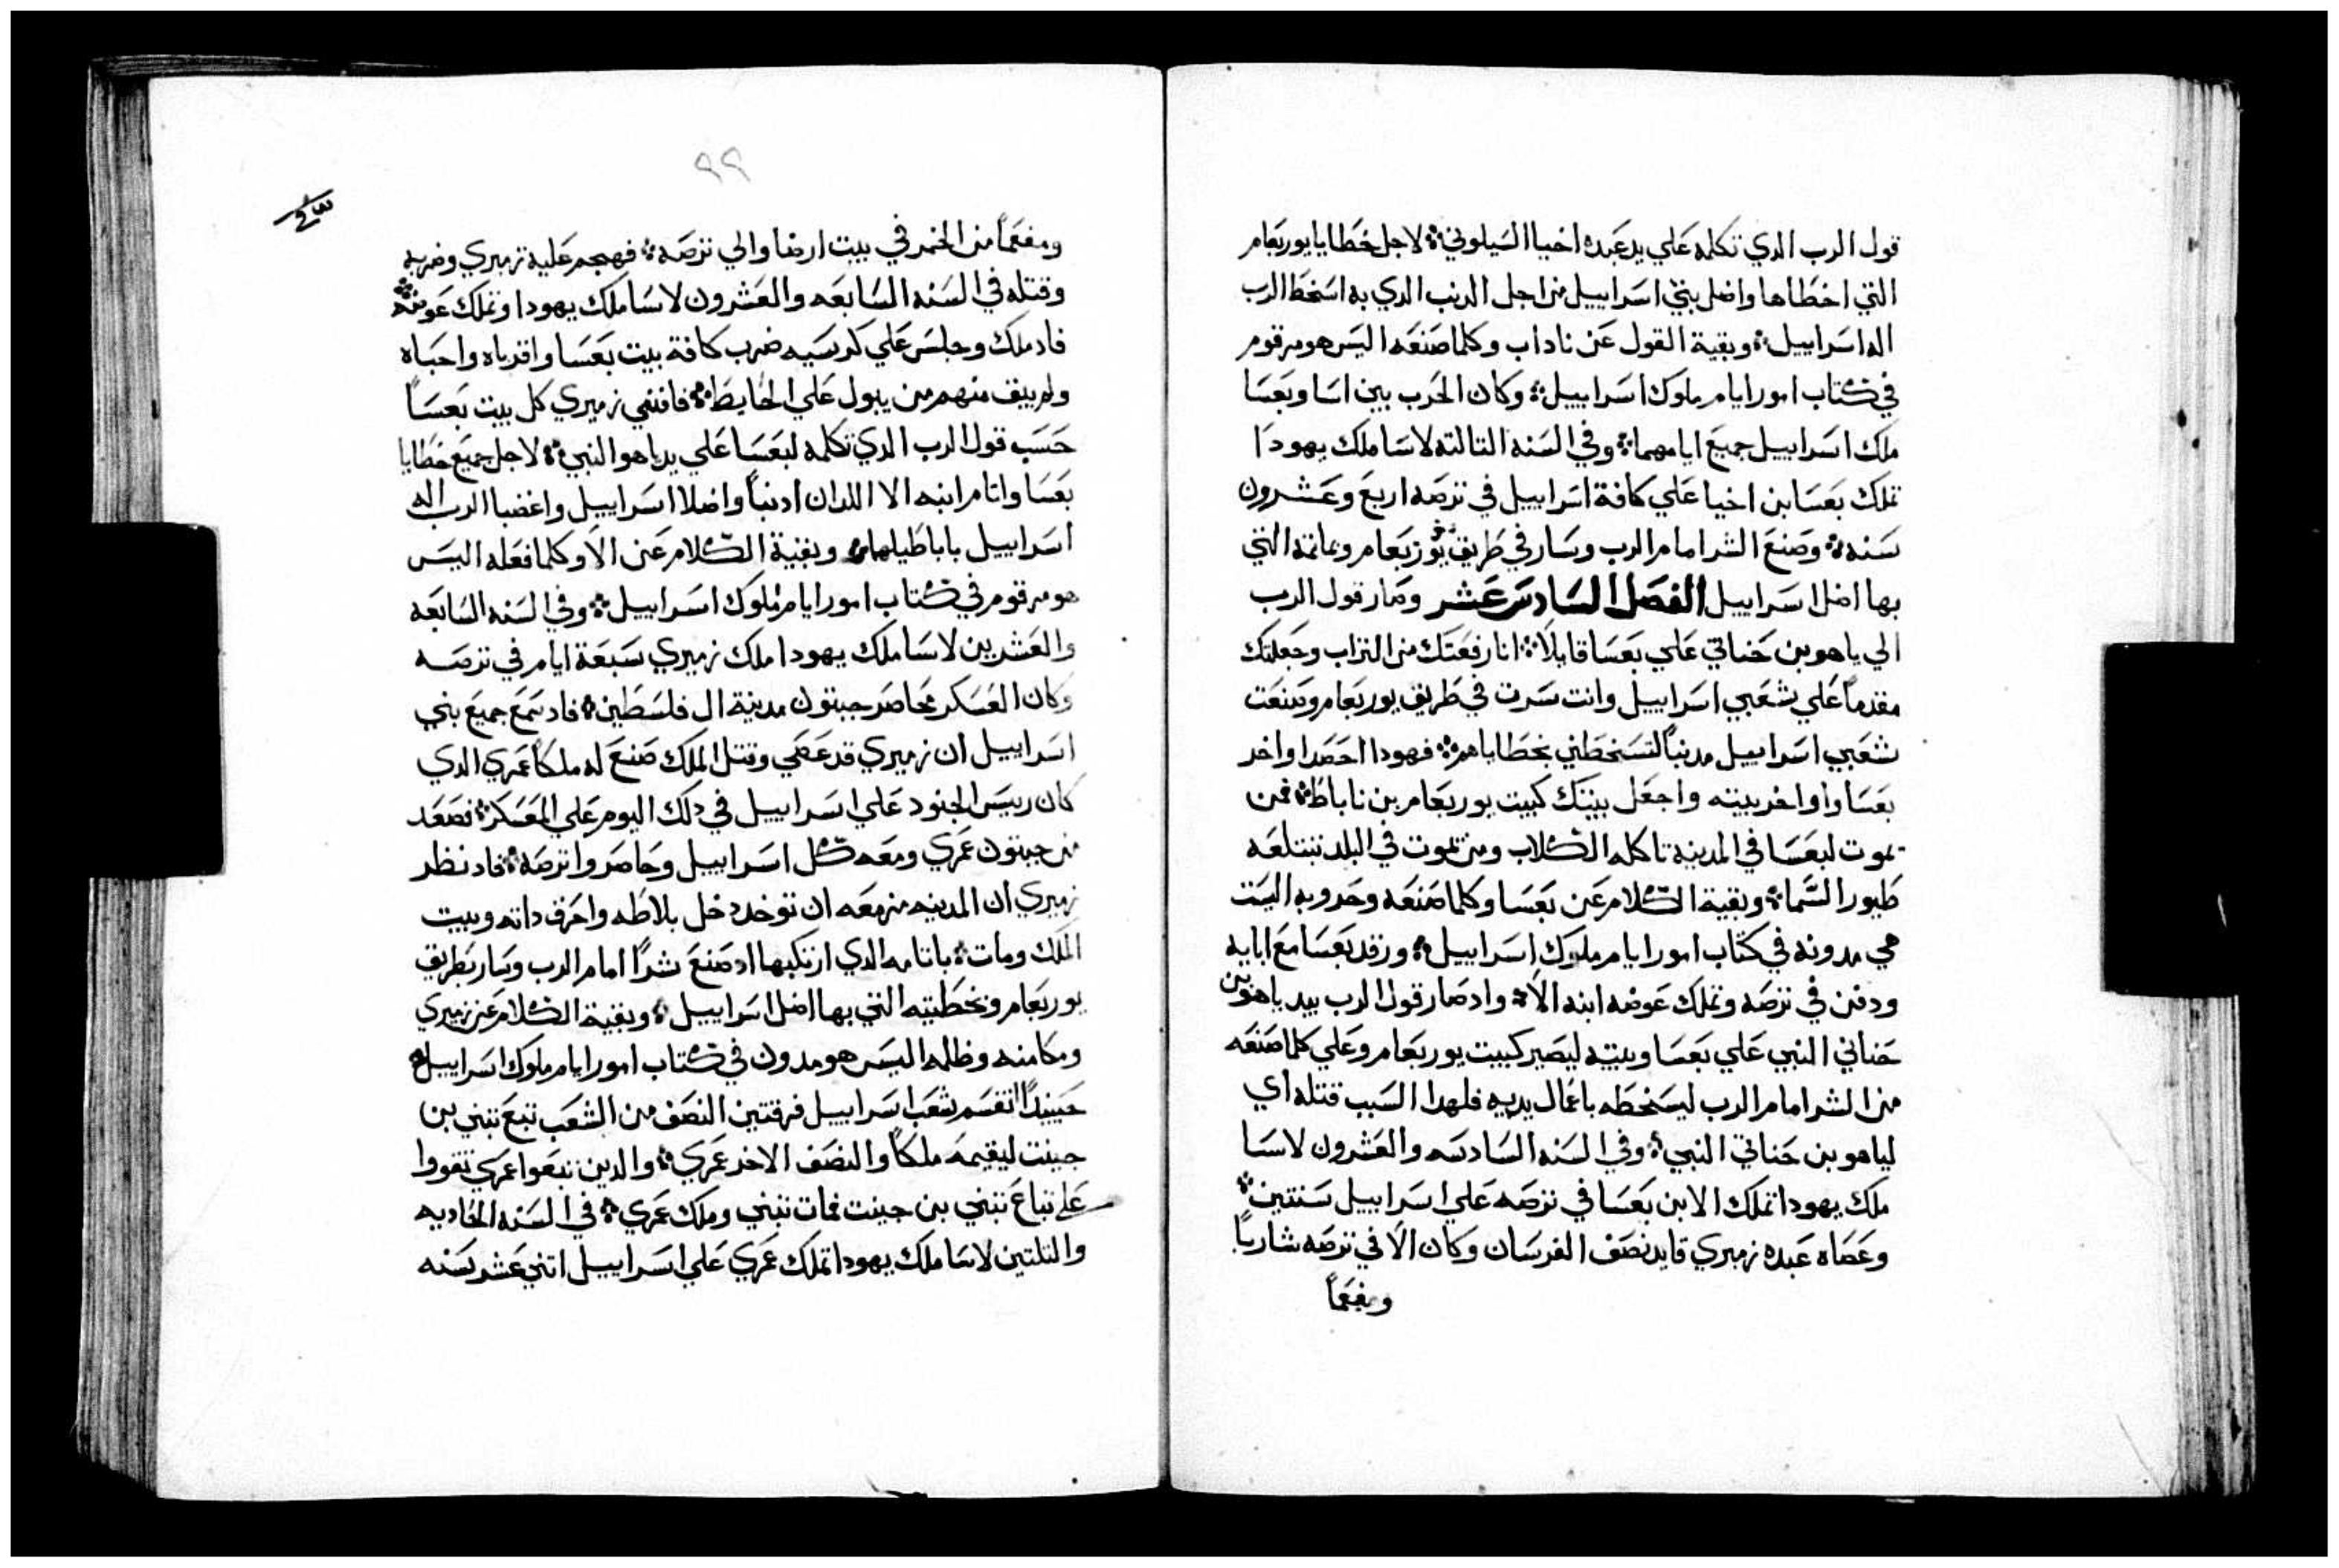 قول الرب الدي تكلمه علي يد عبده اخيا السيلوني لاجل خطايا يوربعام
التي اخطاها واضل بني اسراييل من اجل الدنب الدي به اسخط الرب
اله اسراييل وبقية القول عن ناداب وكلما صنعه اليس هو مرقوم
في كتاب امور ايام ملوك اسراييل وكان الحرب بين اسا وبعسا
ملك اسراييل جميع ايامهما وفي السنه التالته لاسا ملك يهودا
تملك بعسا بن اخيا علي كافة اسراييل في ترصه اربع وعشرون
سنه وصنع الشر امام الرب وسار في طريق يوربعام وبماتمه التي
بها اضل اسراييل الفصل السادس عشر وصار قول الرب
الي ياهو بن حناني علي بعسا قايلا انا رفعتك من التراب وجعلتك
مقدما علي شعبي اسراييل وانت سرت في طريق يوربعام وصنعت
شعبي اسراييل مدنبا لتسخطني بخطاياهم فهودا احصد اواخر
بعسا واواخر بيته واجعل بيتك كبيت يوربعام بن ناباط فمن
يموت لبعسا في المدينه تاكله الكلاب ومن يموت في البلد تبتلعه
طيور السما وبقية الكلام عن بعسا وكلما صنعه وحروبه اليست
هي مدونه في كتاب امور ايام ملوك اسراييل ورقد بعسا مع ابايه
ودفن في ترصه وتملك عوضه ابنه الا واد صار قول الرب بيد ياهو بن
حناني النبي علي بعسا وبيته ليصير كبيت يوربعام وعلي كلما صنعه
من الشر امام الرب ليسخطه باعمال يديه فلهدا السبب قتله اي
لياهو بن حناني النبي وفي السنه السادسه والعشرون لاسا
ملك يهودا تملك الا بن بعسا في ترصه علي اسراييل سنتين
وعصاه عبده زميري قايد نصف الفرسان وكان الا في ترصه شاربا
ومفعما
٩٩
ومفعما من الخمر في بيت ارضا والي ترصه فهجم عليه زميري وضربه
وقتله في السنه السابعه والعشرون لاسا ملك يهودا وتملك عوضه
فاد ملك وجلس علي كرسيه ضرب كافة بيت بعسا واقرباه واحباه
ولم يبق منهم من يبول علي الحايط فافني زميري كل بيت بعسا
حسب قول الرب الدي تكلمه لبعسا علي يد ياهو النبي لاجل جميع خطايا
بعسا واتام ابنه الا اللدان ادنبا واضلا اسراييل واغضبا الرب اله
اسراييل باباطيلهما وبقية الكلام عن الا وكلما فعله اليس
هو مرقوم في كتاب امور ايام ملوك اسراييل وفي السنه السابعه
والعشرين لاسا ملك يهودا ملك زميري سبعة ايام في ترصه
وكان العسكر محاصر جبتون مدينة ال فلسطين فاد سمع جميع بني
اسراييل ان زميري قد عصي وقتل الملك صنع له ملكا عمري الدي
كان رييس الجنود علي اسراييل في دلك اليوم علي المعسكر فصعد
من جبتون عمري ومعه كل اسراييل وحاصروا ترصه فاد نظر
زميري ان المدينه مزمعه ان توخد دخل بلاطه واحرق داته وبيت
الملك ومات باتامه الدي ارتكبها اد صنع شرا امام الرب وسار بطريق
يوربعام وبخطيته التي بها اضل اسراييل وبقية الكلام عن زميري
ومكامنه وظلمه اليس هو مدون في كتاب امور ايام ملوك اسراييل
حينيدا انقسم شعب اسراييل فرقتين النصف من الشعب تبع تبني بن
جينت ليقيمه ملكا والنصف الاخر عمري والدين تبعوا عمري تقووا
علي تباع تبني بن جينت فمات تبني وملك عمري في السنه الحاديه
والتلتين لاسا ملك يهودا تملك عمري علي اسراييل اتني عشر سنه